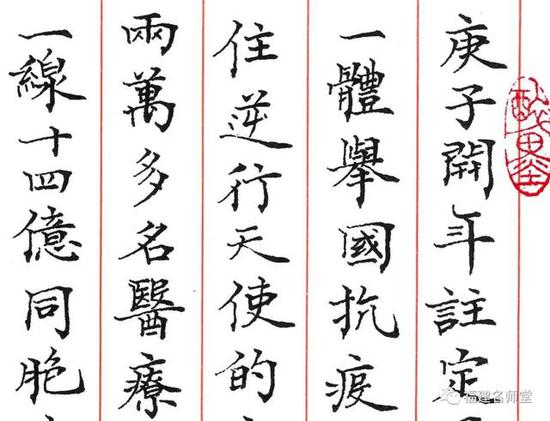 庚子開年註定
一體舉國抗疫
住逆行天使的
兩萬多名醫療
一線十四億同胞
福建名师堂